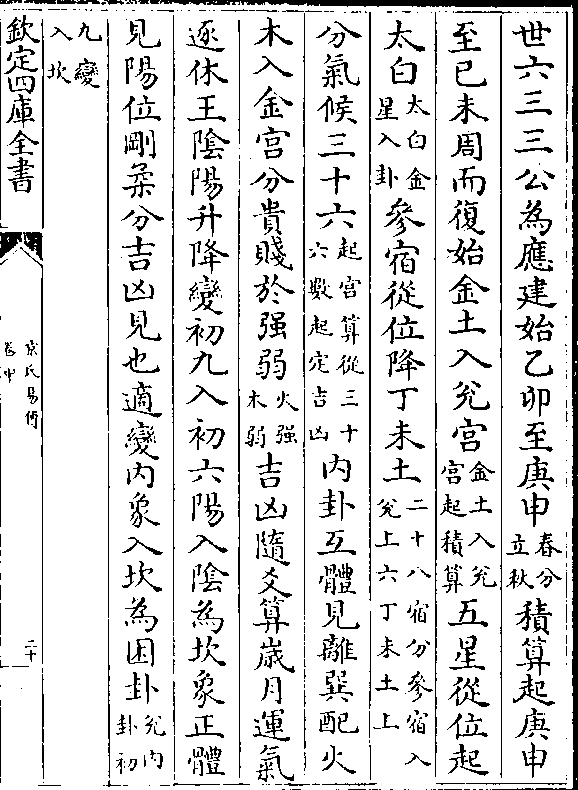 世六三三公為應建始乙卯至庚申春分立秋積算起庚申
至己未周而復始金土入兊宮金土入兊宮起積算五星從位起
太白太白金星入卦參宿從位降丁未土二十八宿分參宿入兊上六丁未土上
分氣候三十六起宮算從三十六數起定吉凶内卦互體見離巽配火
木入金宮分貴賤於强弱火强木弱吉凶隨爻算歲月運氣
逐休王陰陽升降變初九入初六陽入陰為坎象正體
見陽位剛柔分吉凶見也適變内象入坎為困卦兊内卦初
九變入坎
欽定四庫全書
京氏易傳
卷中
二十